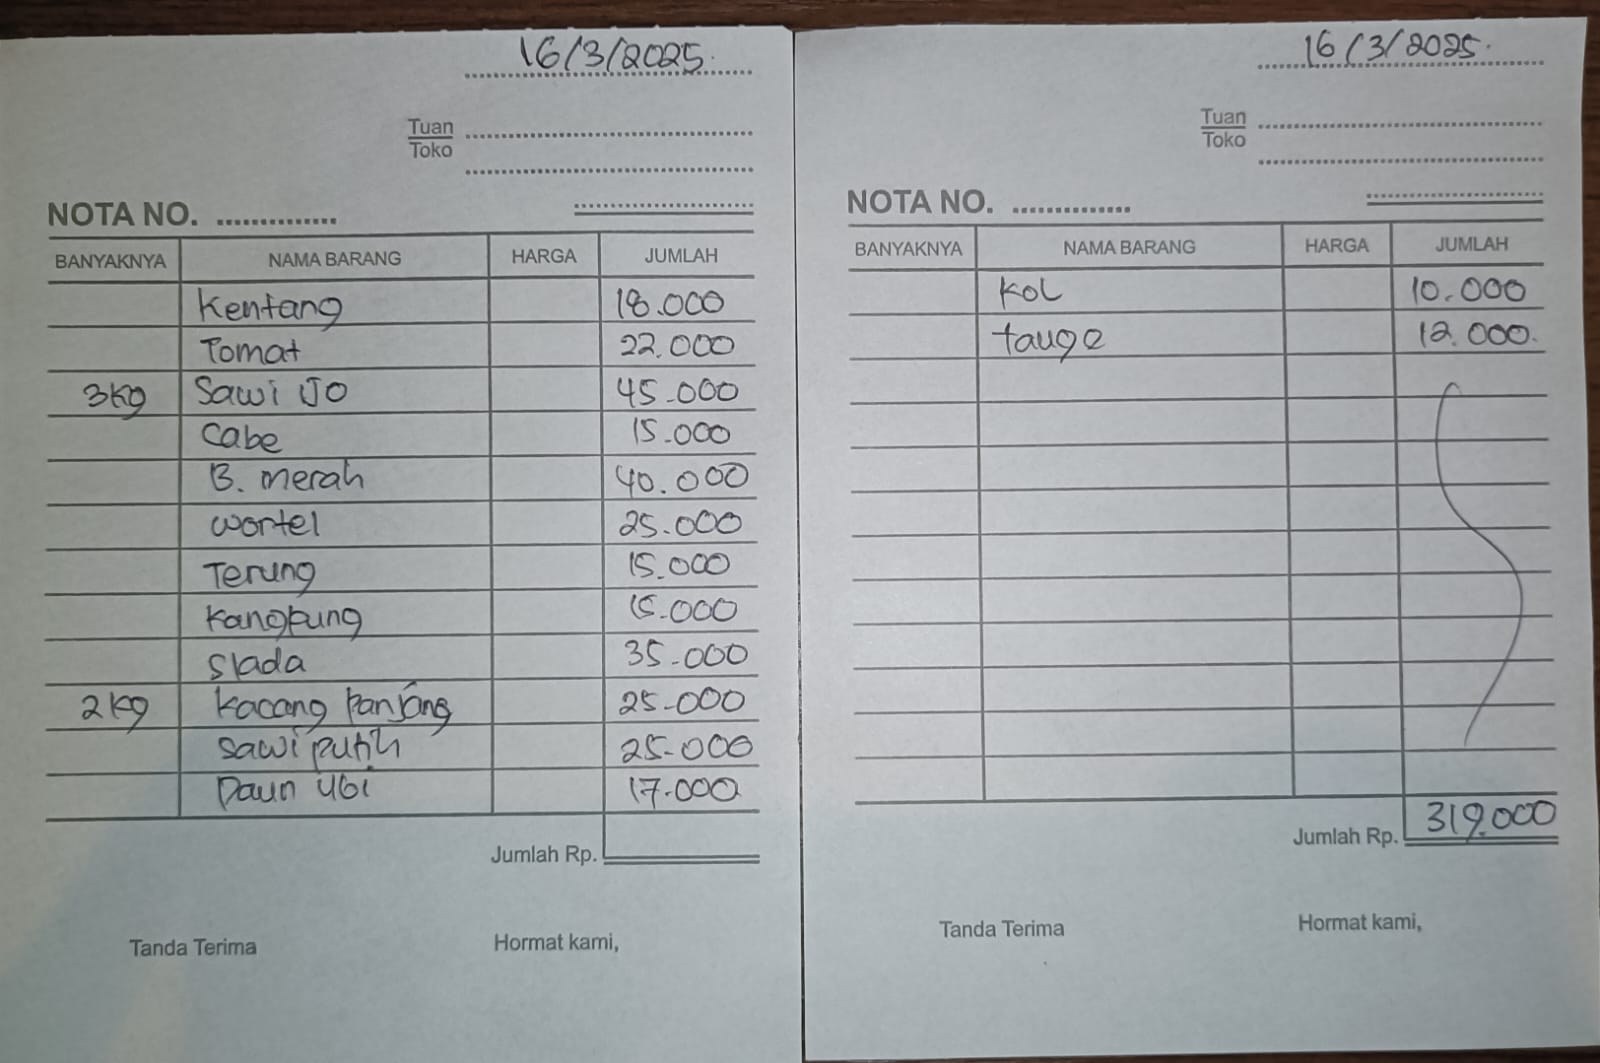 16/3/2025.
Tuan
Toko
NOTA NO. ..............
BANYAKNYA NAMA BARANG HARGA JUMLAH
Kentang 18.000
Tomat 22.000
3kg Sawi IJO 45.000
Cabe 15.000
B. merah 40.000
wortel 25.000
Terung 15.000
Kangkung 15.000
Slada 35.000
2kg Kacang Panjang 25.000
Sawi putih 25.000
Daun Ubi 17.000
Jumlah Rp.
Tanda Terima Hormat kami,
16/3/2025.
Tuan
Toko
NOTA NO. ..............
BANYAKNYA NAMA BARANG HARGA JUMLAH
KOL 10.000
tauge 12.000.
Jumlah Rp. 319.000
Tanda Terima Hormat kami,